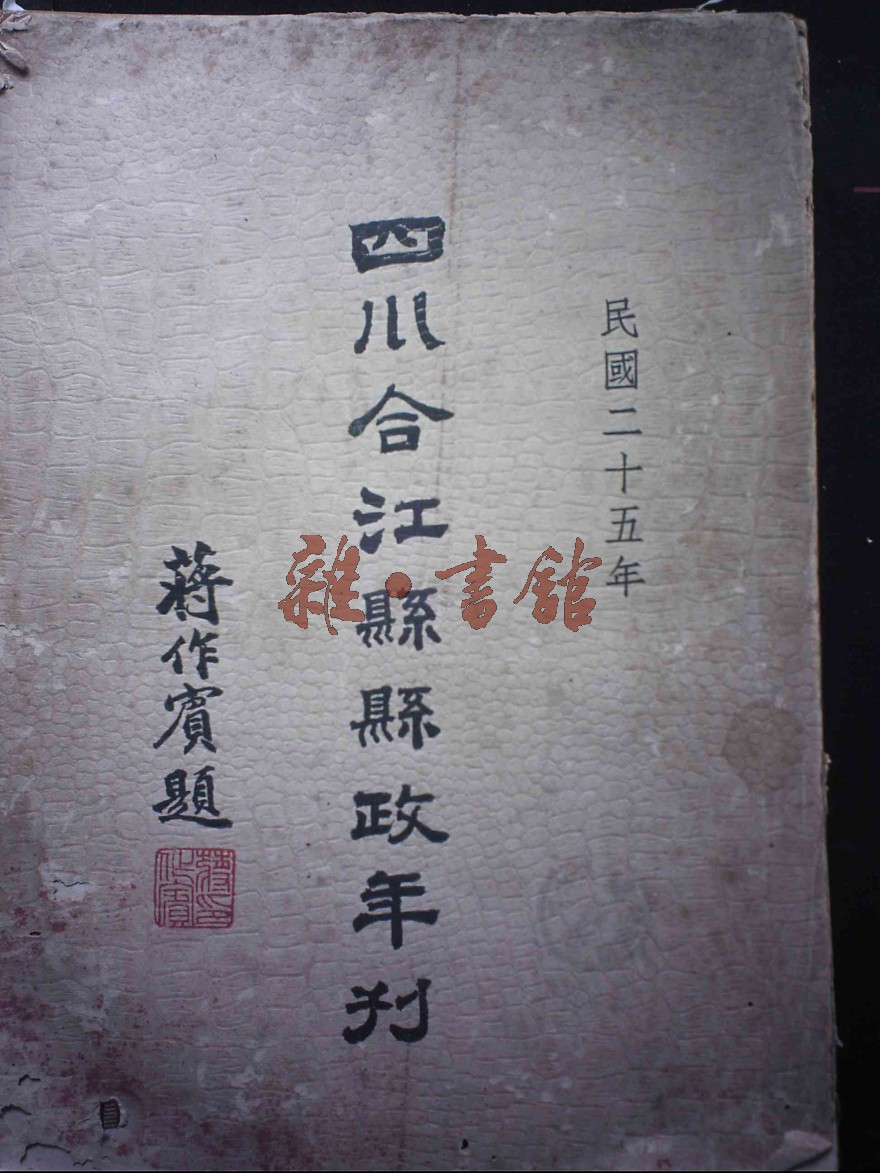 民國二十五年
四川合江縣縣政年刊
蔣作賓題
蔣作賓印
雜·書館